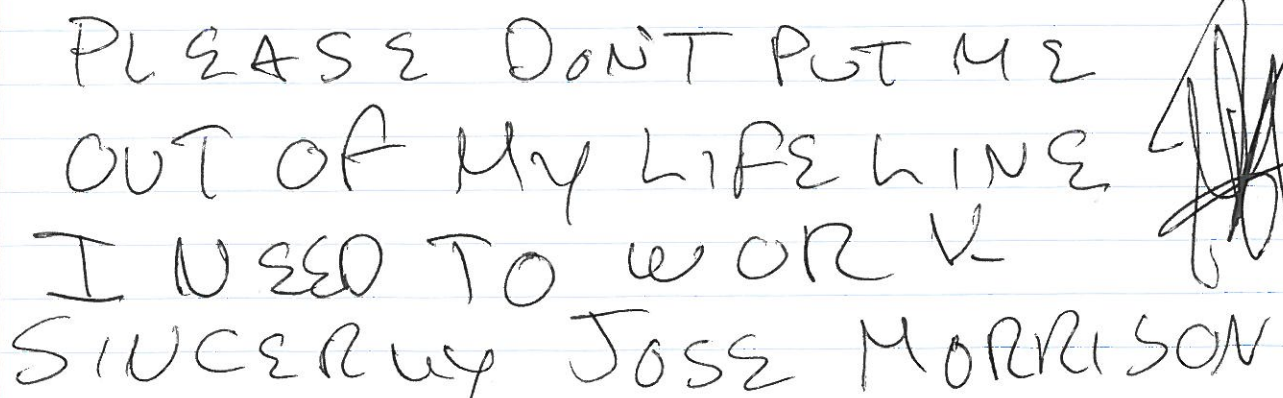 PLEASE DON'T PUT ME
OUT OF MY LIFE LINE
I NEED TO WORK
SINCERLY JOSE MORRISON